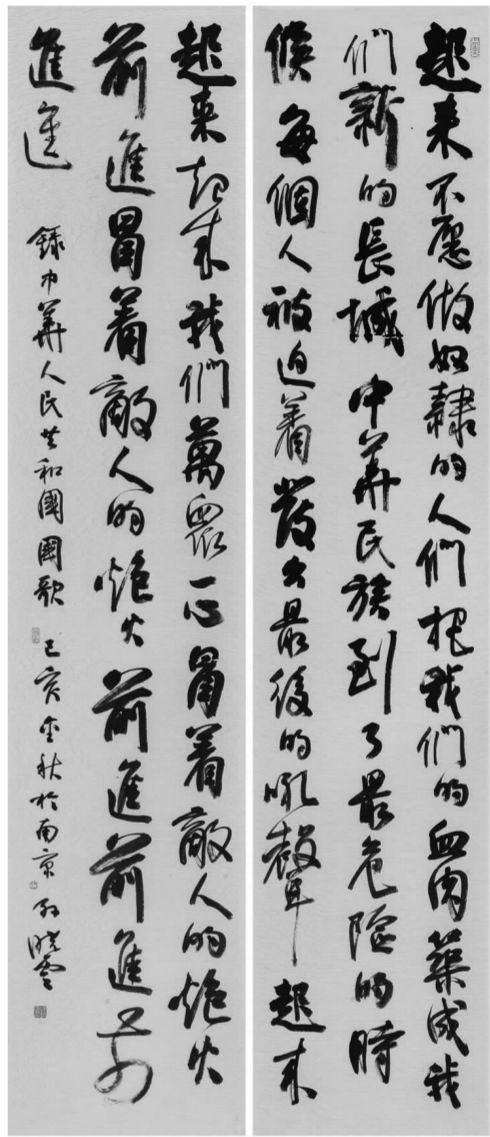 起来不愿做奴隸的人們把我們的血肉築成我
們新的長城中華民族到了最危險的時
候每個人被迫着發出最後的吼聲起来
起来起来我們萬眾一心冒着敵人的炮火
前進冒着敵人的炮火前進前進前
進進 錄中華人民共和國國歌 己亥金秋於南京 孙曉雲